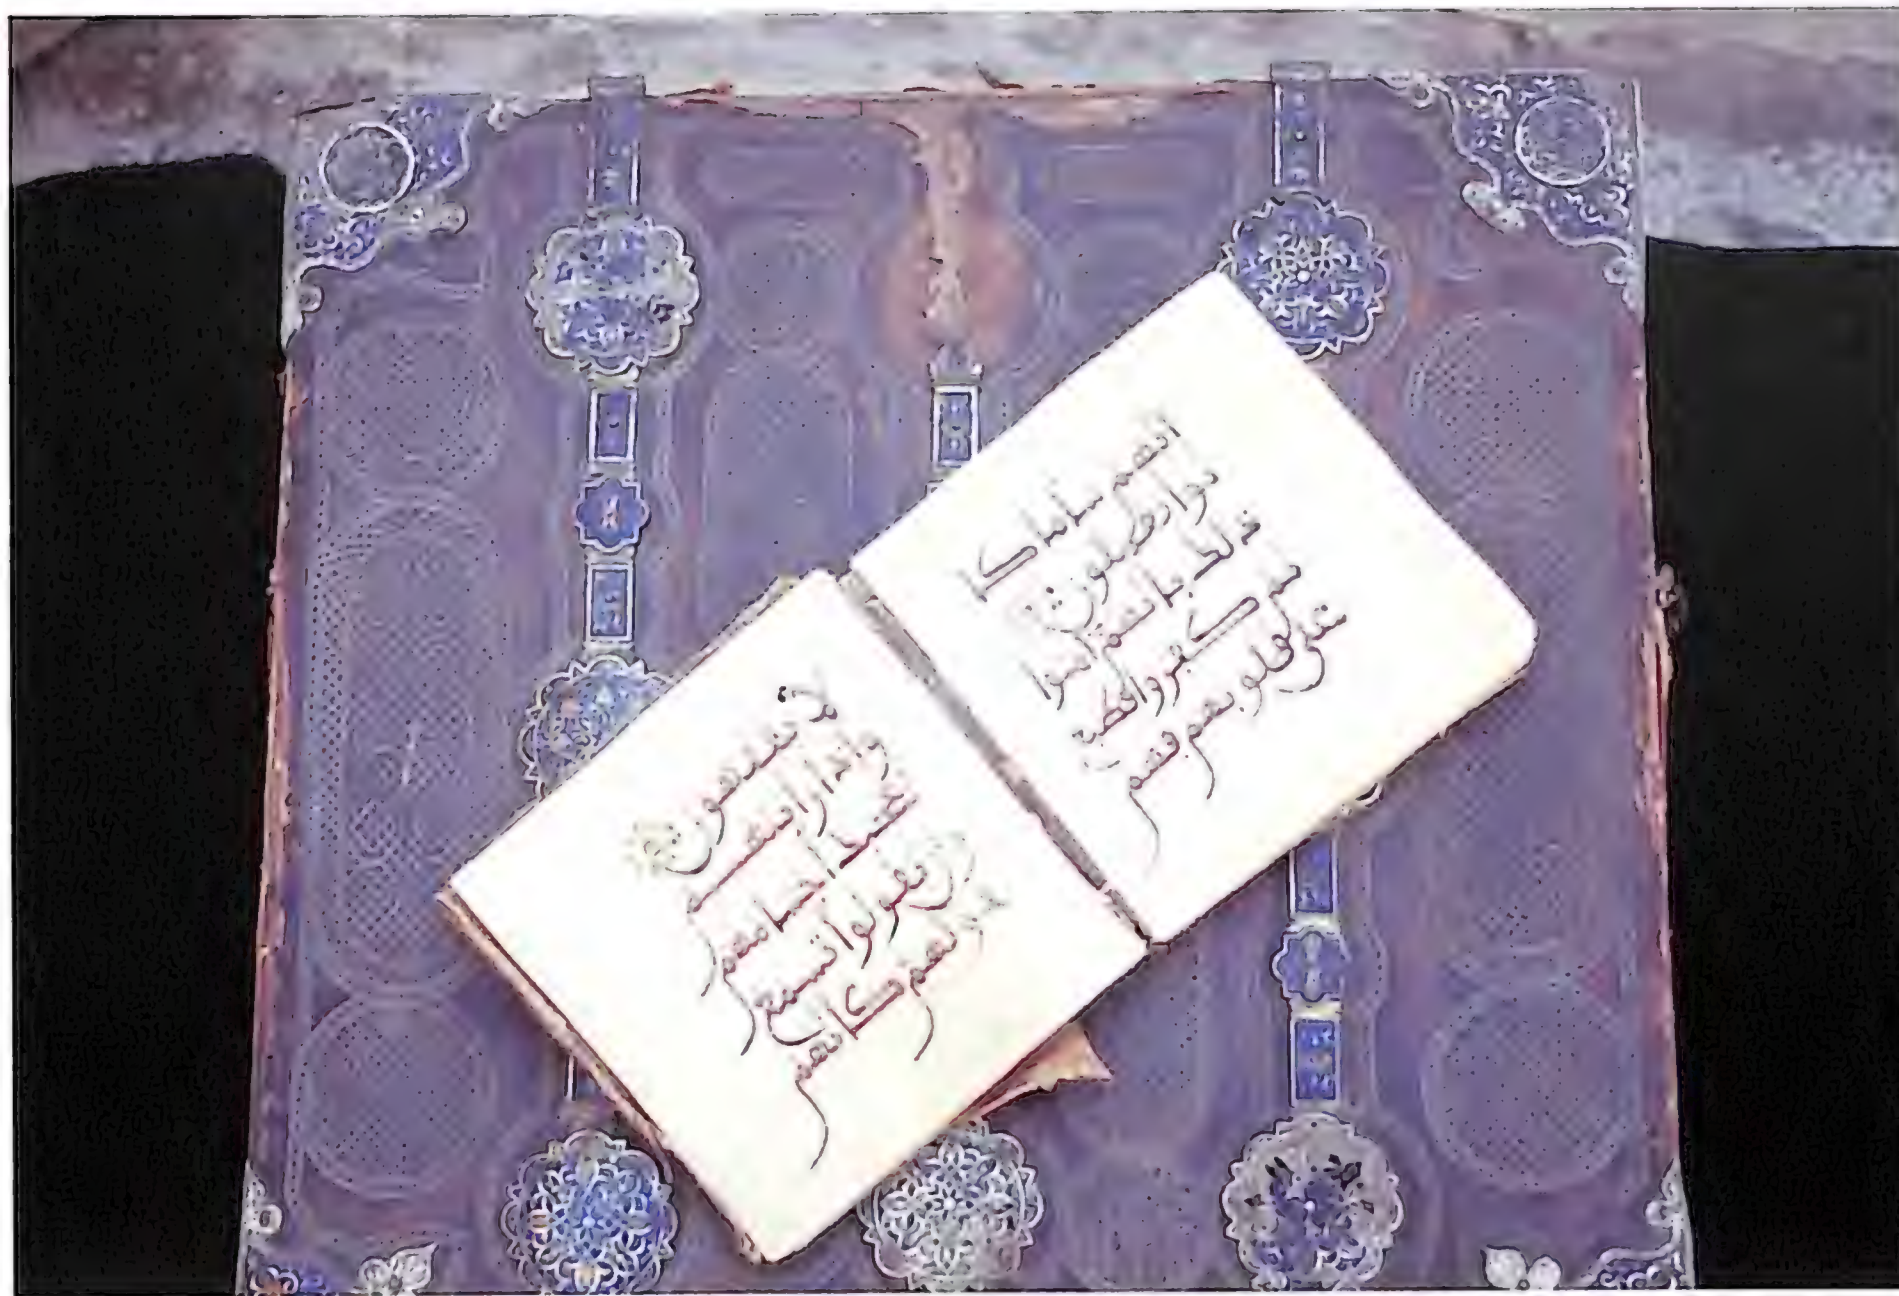 انهم سا ما كا
نوا يعملون
ذلك بانهم امنوا
ثم كفروا فطبع
على قلوبهم فهم
لا يفقهون
واذا رايتهم
تعجبك اجسامهم
وان يقولوا تسمع
لقولهم كانهم